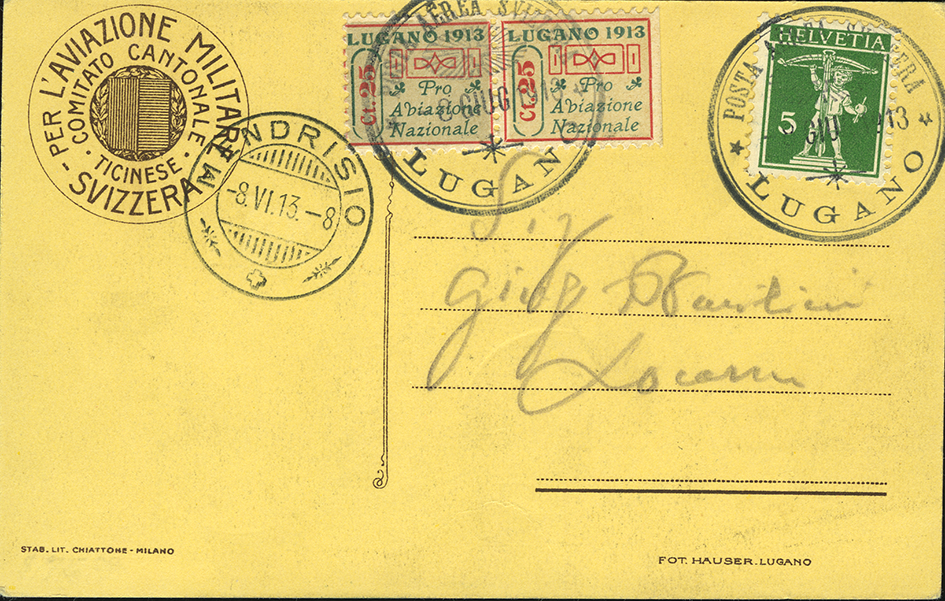 PER L'AVIAZIONE MILITARE
COMITATO CANTONALE
· TICINESE ·
- SVIZZERA -
LUGANO 1913
Ct. 25
Pro
Aviazione
Nazionale
LUGANO 1913
Ct. 25
Pro
Aviazione
Nazionale
POSTA AEREA SVIZZERA
GIUG 1913
LUGANO
HELVETIA
5
POSTA AEREA SVIZZERA
LUGANO
MENDRISIO
-8.VI.13.-8
Sig
Locarno
STAB. LIT. CHIATTONE - MILANO
FOT. HAUSER. LUGANO